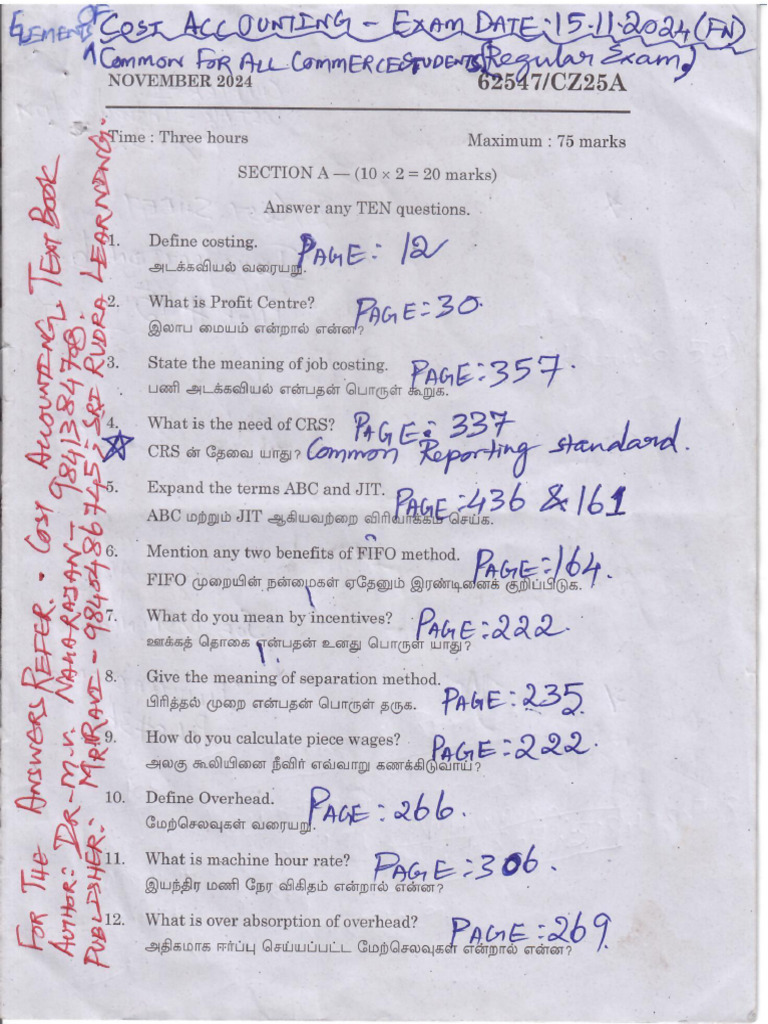 ELEMENTS OF COST ACCOUNTING - EXAM DATE: 15.11.2024 (FN)
(COMMON FOR ALL COMMERCE STUDENTS) (Regular Exam)
NOVEMBER 2024 62547/CZ25A
Time : Three hours Maximum : 75 marks
SECTION A — (10 × 2 = 20 marks)
Answer any TEN questions.
1. Define costing. PAGE: 12
அடக்கவியல் வரையறு.
2. What is Profit Centre? PAGE: 30.
இலாப மையம் என்றால் என்ன?
3. State the meaning of job costing. PAGE: 357.
பணி அடக்கவியல் என்பதன் பொருள் கூறுக.
4. What is the need of CRS? PAGE: 337
CRS ன் தேவை யாது? Common Reporting standard.
5. Expand the terms ABC and JIT. PAGE: 436 & 161
ABC மற்றும் JIT ஆகியவற்றை விரிவாக்கம் செய்க.
6. Mention any two benefits of FIFO method. PAGE: 164.
FIFO முறையின் நன்மைகள் ஏதேனும் இரண்டினைக் குறிப்பிடுக.
7. What do you mean by incentives? PAGE: 222.
ஊக்கத் தொகை என்பதன் உனது பொருள் யாது?
8. Give the meaning of separation method. PAGE: 235
பிரித்தல் முறை என்பதன் பொருள் தருக.
9. How do you calculate piece wages? PAGE: 222.
அலகு கூலியினை நீவிர் எவ்வாறு கணக்கிடுவாய்?
10. Define Overhead. PAGE: 266.
மேற்செலவுகள் வரையறு.
11. What is machine hour rate? PAGE: 306.
இயந்திர மணி நேர விகிதம் என்றால் என்ன?
12. What is over absorption of overhead? PAGE: 269.
அதிகமாக ஈர்ப்பு செய்யப்பட்ட மேற்செலவுகள் என்றால் என்ன?
FOR THE ANSWERS REFER. COST ACCOUNTING TEXT BOOK
AUTHOR: DR-M.V. NAHARAJAN - 9841384708.
PUBLISHER: MR.RAVI - 9840486745, SRI RUDRA LEARNING.